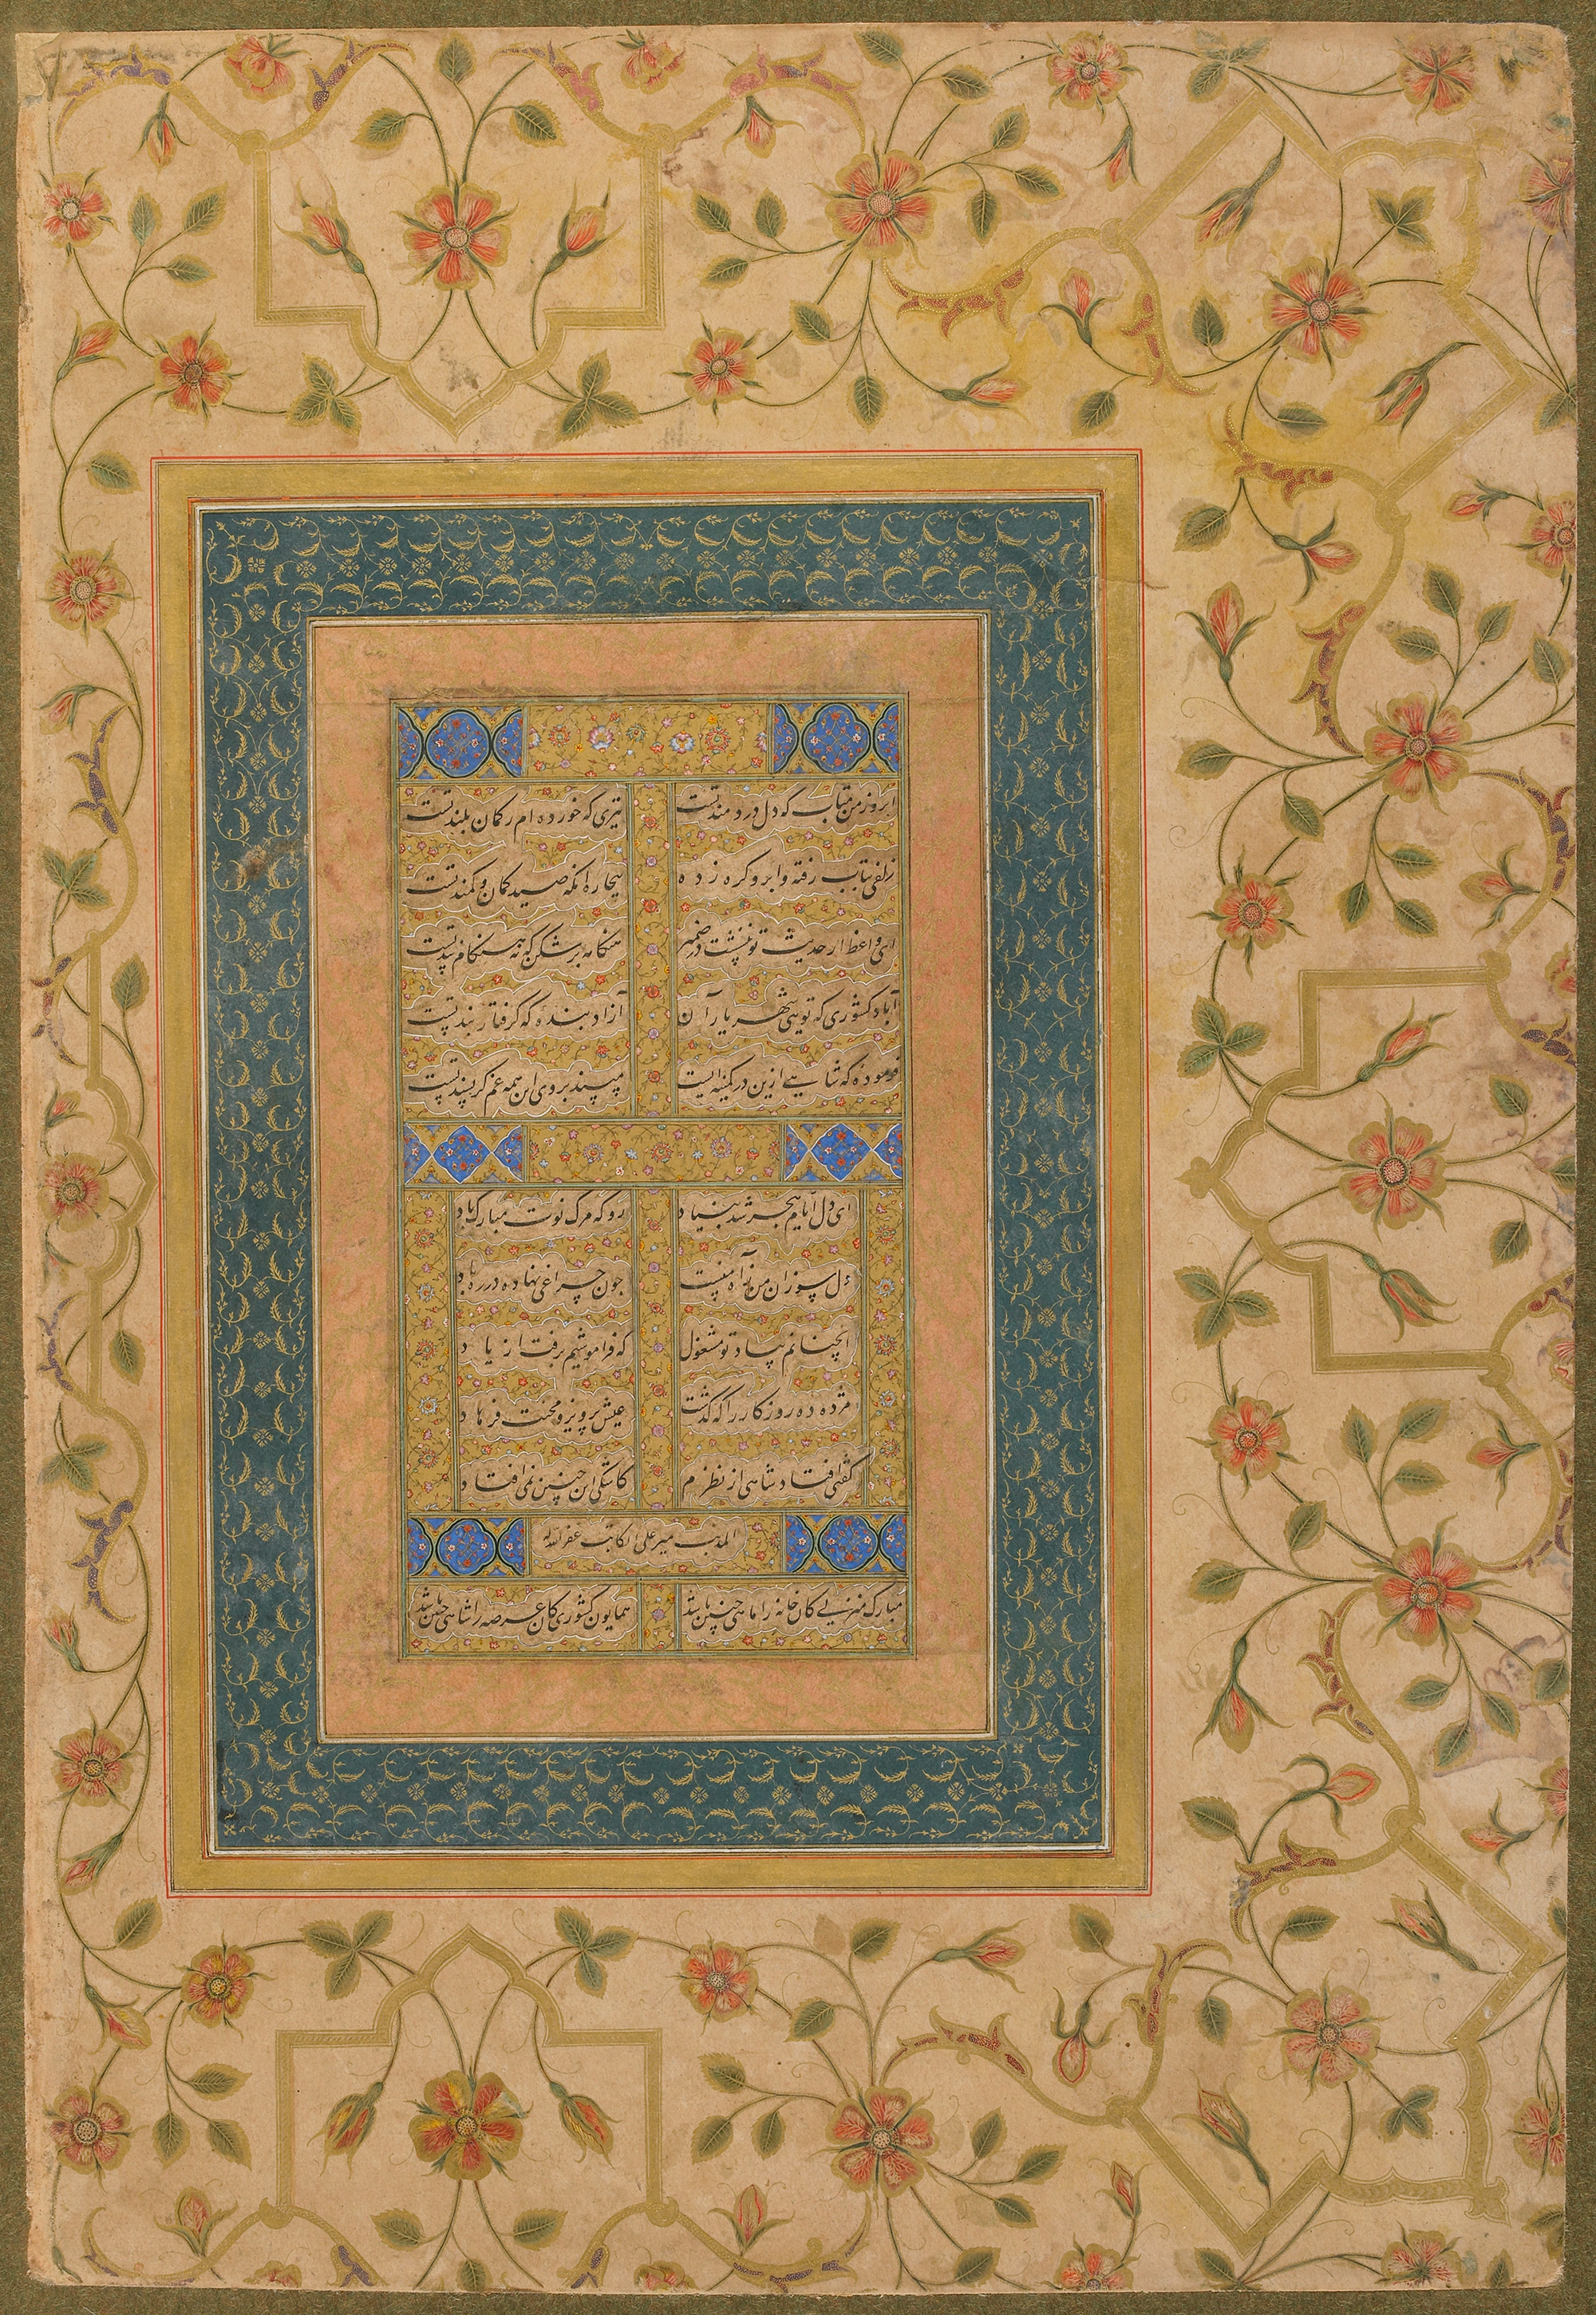 ابرو ز من متاب که دل دردمند تست تیری که خورده ام ز کمان بلند تست
زلفی بتاب رفته و ابرو گره زده بیچاره آنکه صید کمان و کمند تست
ای واعظ از حدیث تو ننشست در ضمیر هنگامه بر شکن که نه هنگام پند تست
آباد کشوری که تویی شهریار آن آزاد بنده که گرفتار بند تست
فرموده که شاهی ازین در کمینه ایست مپسند بروی این همه غم گر پسند تست
ای دل ایام هجر شد بنیاد رو که مرگ نوت مبارک باد
دل سوزان من ز آه منست چون چراغی نهاده در ره باد
آنچنانم بیاد تو مشغول که فراموشیم برفت از یاد
مژده ده روزگار را که گذشت عیش پرویز و محنت فرهاد
گفتی افتاد شاهی از نظرم کاشکی این چنین نمی افتاد
المذنب میر علی الکاتب غفر الله
مبارک منزلی کان خانه را ماهی چنین باشد همایون کشوری کان عرصه را شاهی چنین باشد